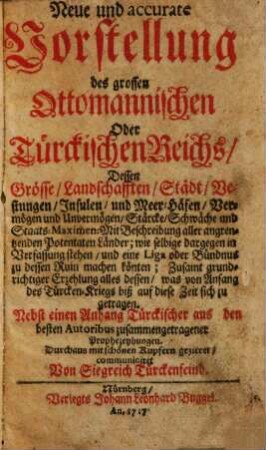 Neue und accurate
Vorstellung
des grossen
Ottomannischen
Oder
Türckischen Reichs/
Dessen
Grösse/Landschafften/Städt/Ve-
stungen/Insulen/und Meer-Häfen/Ver-
mögen und Unvermögen/Stärcke/Schwäche und
Staats-Maximen: Mit Beschreibung aller angren-
tzenden Potentaten Länder; wie selbige dargegen in
Verfassung stehen/und eine Liga oder Bündnus
zu dessen Ruin machen könten; Zusamt grund-
richtiger Erzehlung alles dessen/was von Anfang
des Türcken-Kriegs biß auf diese Zeit sich zu
getragen.
Nebst einen Anhang Türckischer aus den
besten Autoribus zusammengetragener
Prophezeyhungen.
Durchaus mit schönen Kupfern gezieret/
communiciret
Von Siegreich Türckenfeind.
Nürnberg/
Verlegts Johann Leonhard Buggel.
An. 1717